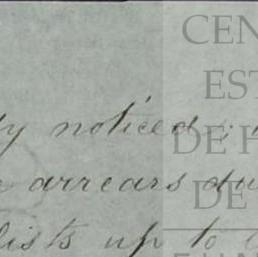 CEN
EST
noticed ;
DE H
arrears du
DE
lists up to